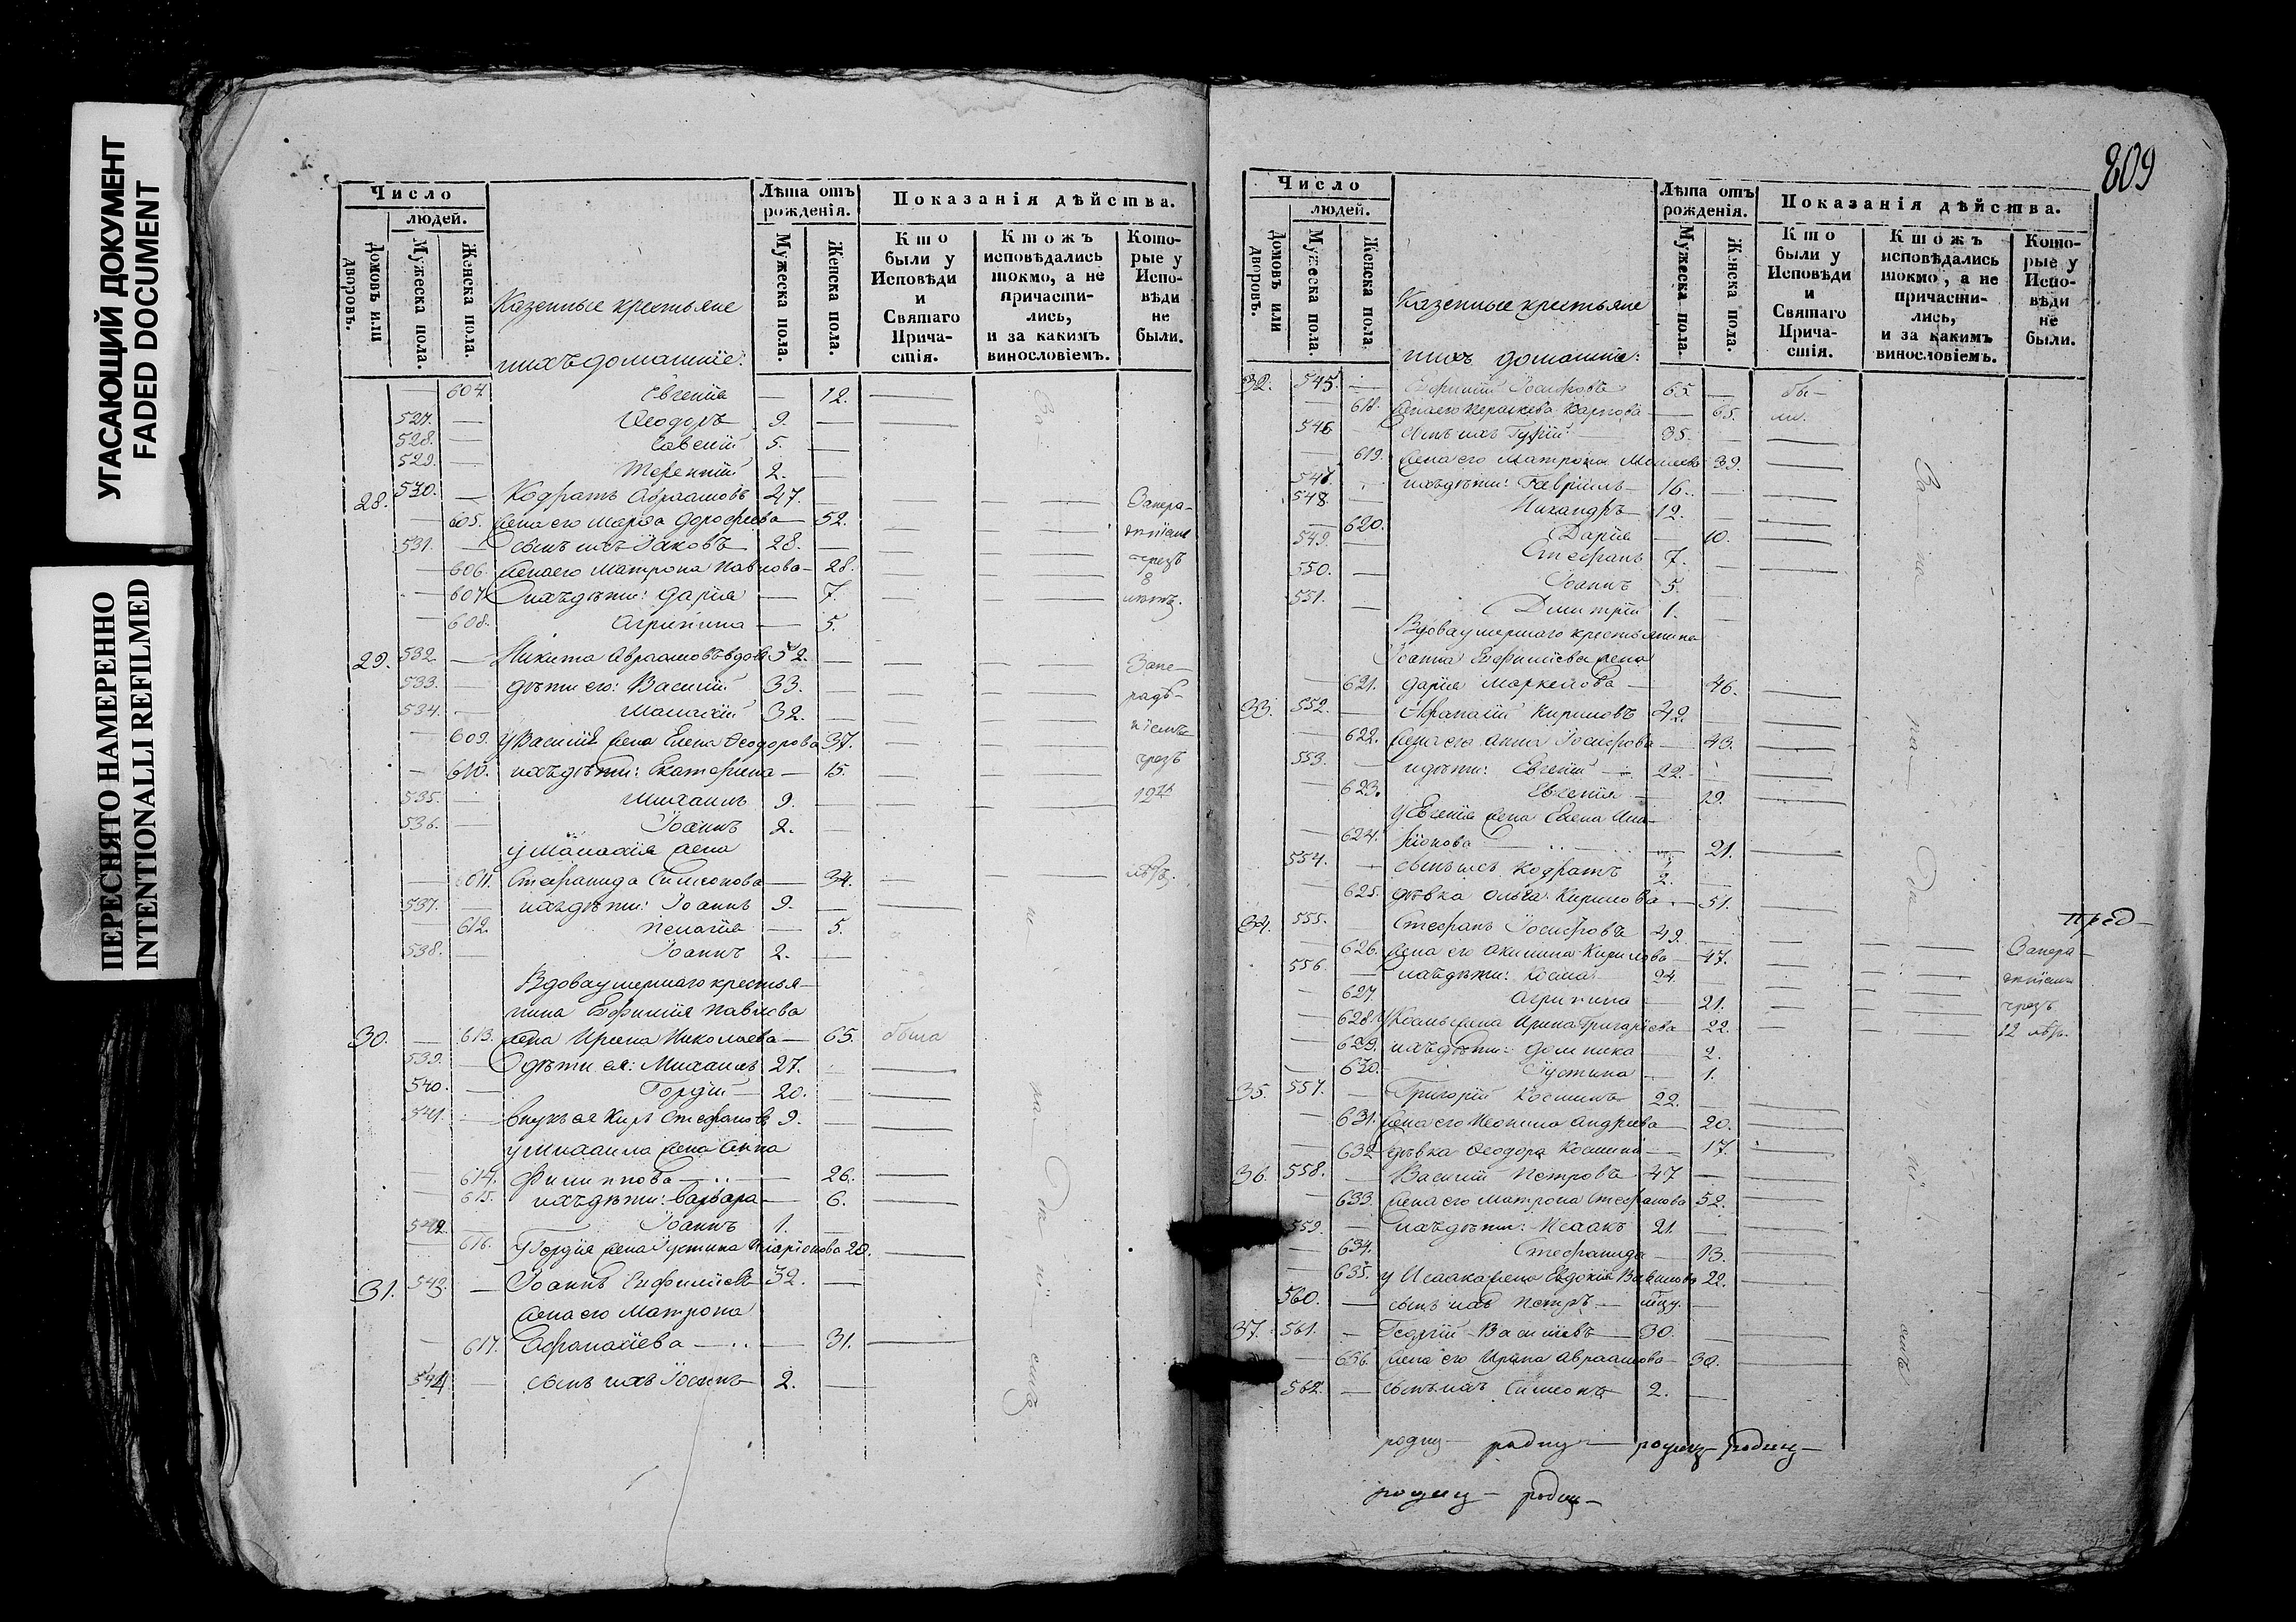 УГАСАЮЩИЙ ДОКУМЕНТ
FADED DOCUMENT
ПЕРЕСНЯТО НАМЕРЕННО
INTENTIONALLI REFILMED
Число
людей.
Домовъ или дворовъ.
Мужеска пола.
Женска пола.
Казенные крестьяне
ихъ домашніе:
Лѣта отъ рожденія.
Мужеска пола.
Женска пола.
Показанія дѣйства.
Кто были у Исповѣди и Святаго Прича-стія.
Ктожъ исповѣдались токмо, а не причасти-лись, и за какимъ винословіемъ.
Кото-рые у Испо-вѣди не были.
— 604. Евгенія — 12. —
527. — Ѳеодоръ 9. — —
528. — Савелій 5. —
529. — Терентій 2. —
28. 530. — Кодратъ Авраамовъ 47. — — — Запера-
— 605. жена его Марѳа Дороѳеева — 52. — —
531. — сынъ ихъ Іаковъ 28. — — —
— 606. жена его Матрона Павлова — 28. — — чрезъ
— 607. ихъ дѣти: Дарія — 7. — — 8 лѣтъ.
— 608. Агрипина — 5.
29. 532. — Никита Авраамовъ вдовъ 52. — — — Запе-
533. — дѣти его: Василій 33. — — —
534. — Малахій 32. — — —
— 609. у Василія жена Елена Ѳеодорова 37. — — чрезъ
— 610. ихъ дѣти: Екатерина — 15. — —
535. — Михаилъ 9. — — — 12ть
536. — Іоаннъ 2. —
у Малахія жена
— 611. Стефанида Симеонова — 34. — — лѣтъ.
537. — ихъ дѣти: Іоаннъ 9. — —
— 612. Пелагія — 5.
538. — Іоаннъ 2. —
Вдова умершаго крестья-
нина Евфимія Павлова
30. — 613. жена Ирина Николаева — 65. была
539. — дѣти ея: Михаилъ 27. — —
540. — Гордій — 20. — —
541. — внукъ ея Киръ Стефановъ 9. — —
у Михаила жена Анна
— 614. Филиппова — 26. —
— 615. ихъ дѣти: Варвара — 6. —
542. — Іоаннъ 1. —
— 616. у Гордія жена Іустина Иларіонова 20. —
31. 543. — Іоаннъ Евфиміевъ 32. —
жена его Матрона
— 617. Аѳанасіева — 31. —
544 — сынъ ихъ Іосифъ 2. —
809
Число
людей.
Домовъ или дворовъ.
Мужеска пола.
Женска пола.
Казенные крестьяне
ихъ домашніе:
Лѣта отъ рожденія.
Мужеска пола.
Женска пола.
Показанія дѣйства.
Кто были у Исповѣди и Святаго Прича-стія.
Ктожъ исповѣдались токмо, а не причасти-лись, и за какимъ винословіемъ.
Кото-рые у Испо-вѣди не были.
32. 545. — Іосифовъ 65. — бы-
— 618. жена его Параскева Карпова — 65. ли.
546 — сынъ ихъ Гурій — 35. — —
— 619. жена его Матрона 39. —
547. — ихъ дѣти: Гавріилъ 16. — —
548. Никандръ 12. — —
— 620. Дарія — 10. —
549. — Стефанъ 7. — —
550. — Іоаннъ 5. —
551. — Димитрій 1. —
Вдова умершаго крестьянина
Іоанна Евфиміева жена
— 621. Дарія Маркелова — 46. —
33. 552. — Аѳанасій Кириловъ 42. — —
— 622. жена его Анна Іосифова — 43. —
553. — и дѣти: Евгеній — 22. — —
— 623. Евгенія — 19. —
у Евгенія жена Елена Ила-
— 624. ріонова — 21. —
554. — сынъ ихъ Кодратъ 2. — —
— 625. дѣвка Ольга Кирилова — 51. —
34. 555. — Стефанъ Іосифовъ 49. — — —
— 626. жена его Акилина Кирилова — 47. — — Запера-
556. — ихъ дѣти: Косма 24. — — —
— 627. Агрипина — 21. — — чрезъ
— 628. у Космы жена Ирина Григоріева 22. — — 12 лѣтъ.
— 629. ихъ дѣти: Домника — 2.
— 630. Іустина — 1.
35. 557. — Григорій Косминъ 22. — —
— 631. жена его Неонила Андреева — 20. —
— 632 дѣвка Ѳеодора Космина — 17. —
36. 558. — Василій Петровъ 47 — —
— 633. жена его Матрона Стефанова 52. —
559. — ихъ дѣти: Исаакъ 21. — —
— 634. Стефанида — 13. —
— 635. у Исаака жена Евдокія 22. —
560. — сынъ ихъ Петръ —
37. 561. — Георгій Васильевъ — 30. — —
— 636. жена его Ирина Авраамова — 30. —
562. — сынъ ихъ Симеонъ 2. —
пред-
родиц- родиц- родиц- родиц-
родиц- родиц-